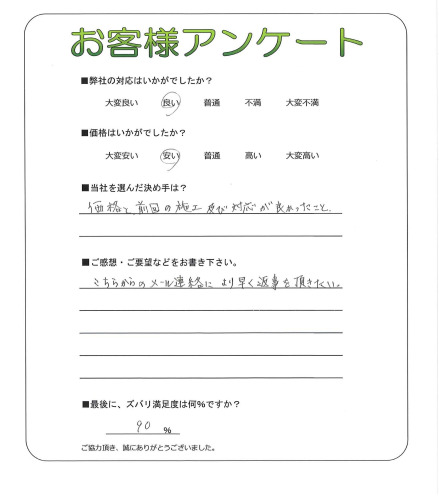 お客様アンケート
■弊社の対応はいかがでしたか？
大変良い 良い 普通 不満 大変不満
■価格はいかがでしたか？
大変安い 安い 普通 高い 大変高い
■当社を選んだ決め手は？
価格と、前回の施工及び対応が良かったこと。
■ご感想・ご要望などをお書き下さい。
こちらからのメール連絡により早く返事を頂きたい。
■最後に、ズバリ満足度は何％ですか？
90 ％
ご協力頂き、誠にありがとうございました。